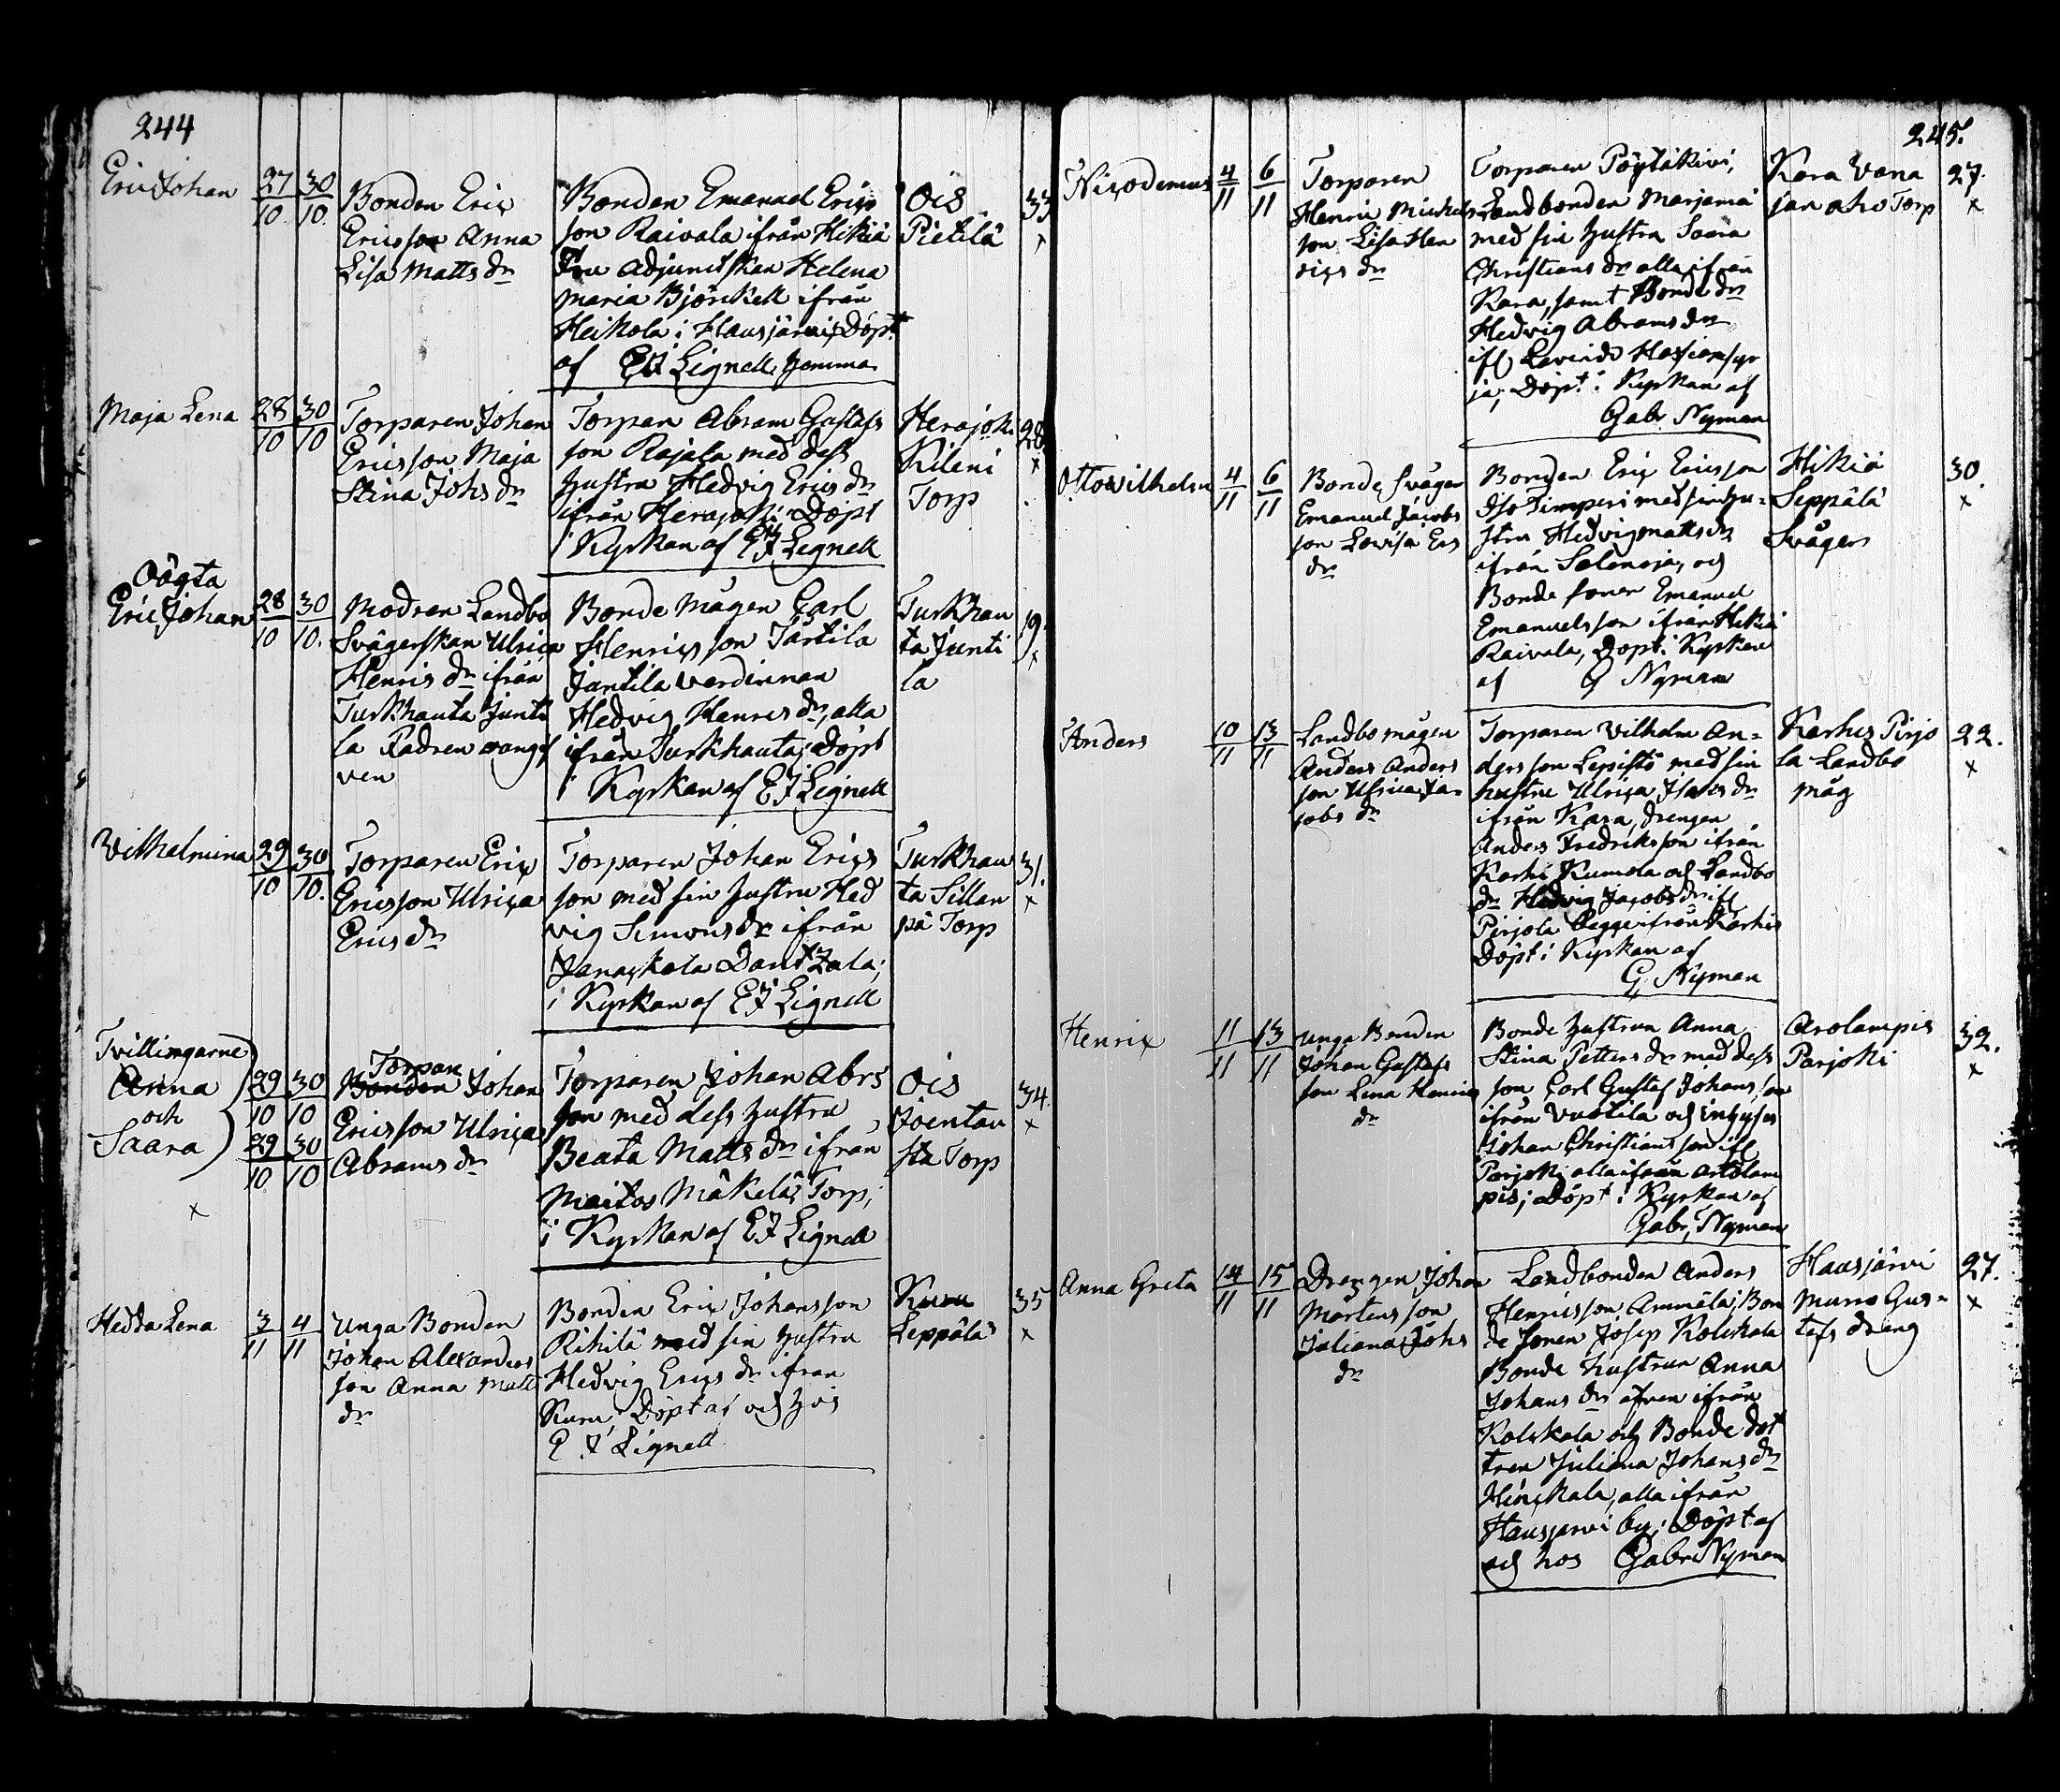 244
Eric Johan
27 30
10 10
Bonden Eric
Ericsson Anna
Lisa Matts dr
Bonden Emanuel Erics
son Raivala ifrån Hikiä
Fru Adjunctskan Helena
Maria Björckell ifrån
Heikola i Hausjärvi, Döpt
af EJ Lignell hemma
Ois
Pietilä
33
x
Maja Lena
28 30
10 10
Torparen Johan
Ericsson Maja
Stina Johs dr
Torparn Abram Gustafs
son Rajala med dess
hustru Hedvig Erics dr
ifrån Herajoki Döpt
i Kyrkan af EJ Lignell
Herajoki
Kileni
Torp
28
x
Oägta
Eric Johan
28 30
10 10.
Modren Landbo
Svägerskan Ulrica
Henrics dr ifrån
Turkhauta Junti
la Fadren oangif
ven
Bonde mågen Carl
Henricsson Tartila
Jantila värdinnan
Hedvig Henrics dr, alla
ifrån Turkhauta; Döpt
i Kyrkan af EJ Lignell
Turkhau
ta Junti
la
19.
x
Vilhelmina
29 30
10 10.
Torparen Eric
Ericsson Ulrica
Erics dr
Torparen Johan Erics
son med sin hustru Hed
vig Simons dr ifrån
Janackala Dantzala;
i Kyrkan af EJ Lignell
Turkhau
ta Sillan
pä Torp
31.
x
Tvillingarne
Anna
och
Saara
29 30
10 10
29 30
10 10
x
Torpar
Bonden Johan
Ericsson Ulrica
Abrams dr
Torparen Johan Abrs
son med dess hustru
Beata Matts dr ifrån
Maitos Mäkelä Torp;
i Kyrkan af EJ Lignell
Ois
Joentau
sta Torp
34.
x
Hedda Lena
3 4
11 11
Unga Bonden
Johan Alexanders
son Anna Matts
dr
Bonden Eric Johansson
Rihilä med sin hustru
Hedvig Erics dr ifrån
Kuru Döpt af och hos
E J Lignell
Kuru
Leppälä
35
x
245.
Nicodemus
4 6
11 11
Torparen
Henric Mickels
son Lisa Hen
rics dr
Torparen Pöytäkivi,
Landbonden Marjamä
med sin hustru Saara
Christians dr alla ifrån
Kara, samt Bonde dr
Hedvig Abrams dr
ifr
ja, Döpt i Kyrkan af
Gabr. Nyman
Kara Vana
jan aho Torp
27.
x
Otto Vilhelm
4 6
11 11
Bonde Svåger
Emanuel Jacobs
son Lovisa Ers
dr
Bonden Eric Ericsson
Iso Timperi med sin hu=
stru Hedvig Matts dr
ifrån Selenoja, och
Bonde sonen Emanuel
Emanuelsson ifrån Hikiä
Raivala, Döpt i Kyrkan
af G Nyman
Hikiä
Seppälä
Svåger
30.
x
Anders
10 13
11 11
Landbo mågen
Anders Anders
son Ulrica Ja=
cobs dr
Torparen Vilhelm An=
dersson Lepistö med sin
hustru Ulrica Isacs dr
ifrån Kara, drengen
Anders Fredriksson ifrån
Karhi Kumola och Landbo
dr Hedvig Jacobs dr ifr
Pirjola begge ifrån Karhis
Döpt i Kyrkan af
G. Nyman
Karhis Pirjo
la Landbo
måg
22.
x
Henric
11 13
11 11
Unga Bonden
Johan Gustafs
son Lena Henrics
dr
Bonde hustrun Anna
Stina Petters dr med dess
son Carl Gustaf Johansson
ifrån Vuotila och inhyses
Johan Christiansson ifr
Parjoki alla ifrån Arolam
pis; Döpt i Kyrkan af
Gabr. Nyman
Arolampis
Parjoki
32.
x
Anna Greta
14 15
11 11
Drengen Johan
Mårtensson
Juliana Johs
dr
Landbonden Anders
Henricsson Ammälä; Bon
de sonen Josep Kolckala
Bonde hustrun Anna
Johans dr äfven ifrån
Kolckala och Bonde dot
tren Juliana Johans dr
Hinckala, alla ifrån
Hausjärvi by; Döpt af
och hos Gabr. Nyman
Hausjärvi
Muro Gus=
tafs dreng
27.
x